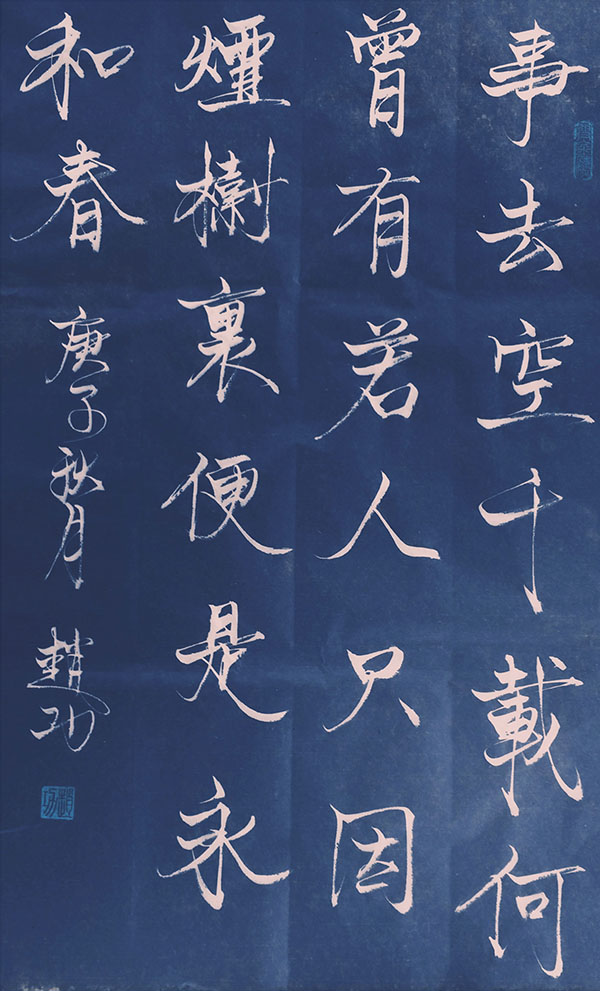 事去空千載何
曾有若人只因
煙樹裏便是永
和春
庚子秋月 趙功